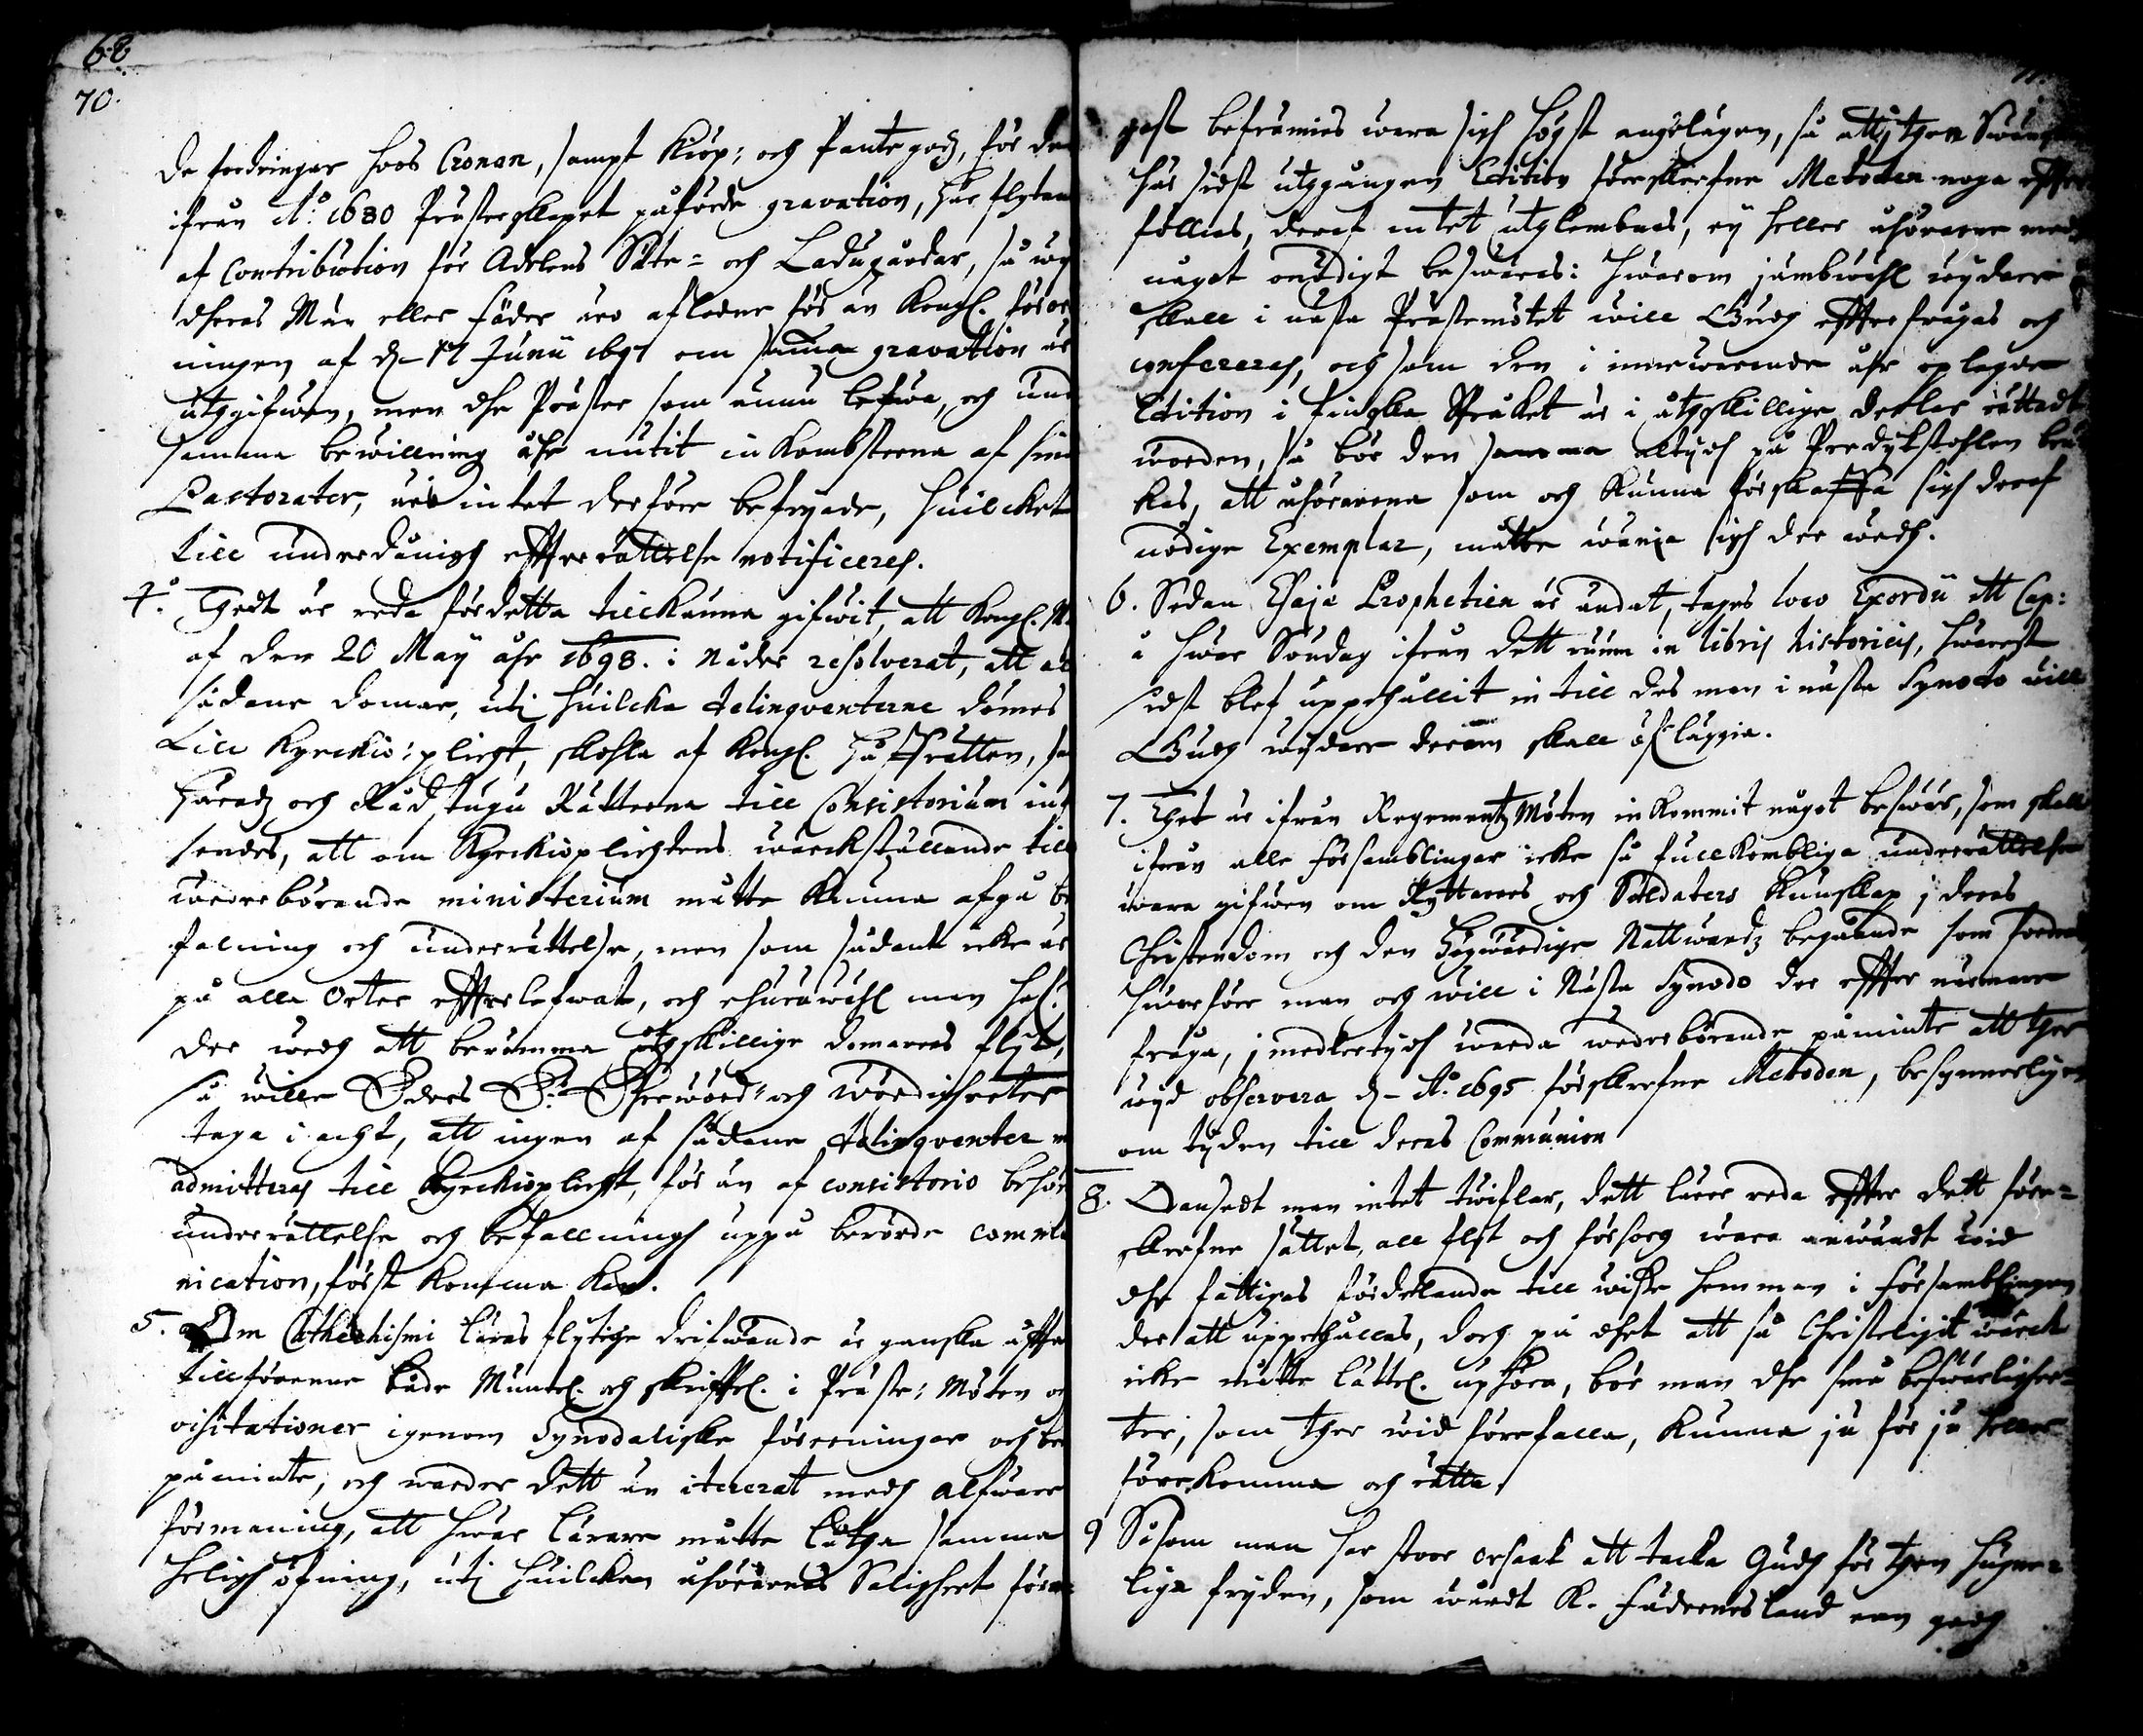 68.
70.
de fordringar hoos Cronan, sampt Kiöp: och Pantegodz, för den
ifrån Ao: 1680 Prästerskapet påförde gravation, här flytan
af Contribution för Adelens Säte= och Ladugårdar, så wijd
dheras Män eller fäder äro afledne för än Kongl. föror
ningen af d- 17 Junii 1697 om samma gravation är
utgifwen, men dhe Präster som ännu lefwa, och und
samma bewillning åhr nutit inkombsterna af sine
Pastorater, äre intet derföre befryade, huilcket
till underdånigh effterrättelse notificeres.
4o. Thedt är reda för detta tillkänna gifwit, att Kongl. M.
af den 20 Maÿ åhr 1698. i Nåder resolverat, att al
sådane domar, uti huilcka delinqventerne dömes
till Kyrckio: plicht, skohla af Kongl. Håffrätten, sa
Häradz och Rådstugu Rätterna till Consistorium ins
sendes, att om Kyrckioplichtens wärckställande till
wederbörande ministerium måtte kunna afgå be
falning och underrättelse, men som sådant icke är
på alla Orter effterlefwat, och ehuruwähl man haf:r
der wedh att berömma åtskillige domares flijt,
så wille Eders B: Ehrewörd: och Wördigheeter
taga i acht, att ingen af sådane delinqventer m
admitteras till Kyrckioplicht, för än af consistorio behör
underrättelse och befallningh uppå berörde commu
nication, först komma kan.
5. Om Cathechismi läras flytige drifwande är ganska offta
tillförenne både Muntl. och skrifftl. i Präste: Möten oc
visitationer igenom Synodaliske föreningar och be
påminte, och warder dett än itererat medh alfwar
förmaning, att hwar lärare måtte låtha samma
heligh öfning, uti huilcken åhörarnes Saligheet främ
gast befrämies wara sigh högst angelägen, så att i then Swänska
här sidst utggångne Edition föreskrefne Methoden noga effter
föllies, deraf intet utglembnas, eÿ heller åhörarne med
något onödigt beswäras: hwarom jämbwähl wijdare
skall i nästa Prästemötet will Gudh effterfrågas och
confereres, och som den i innewarande åhr oplagde
Edition i finska Språket är i åtskillige dehlar rättadt
worden, så bör den samma altijdh på Predikstohlen bru
kas, att åhörarena som och kunna förskaffa sigh deraf
nödige Exemplar, måtte wänja sigh der wedh.
6. Sedan Esaiæ Prophetien är ändat, tages loco Exordii ett Cap:
å hwar Söndag ifrån dett rum in libris historicis, hwarest
sidst blef uppehållit in till des man i nästa Synodo will
Gudh wijdare derom skall öf:läggia.
7. Thet är ifrån RegementzMöten inkommit något beswär, som skall
ifrån alla församblingar icke så fullkombliga underrättelse
wara gifwen om Ryttares och Soldaters Kunskap i deras
Christendom och den Högwärdige Nattwardz begående som fordras
hwarföre man och will i Nästa Synodo der effter närmare
fråga, j medlertijdh warda wederbörande påminte att ther
wijd observera d- Ao: 1695 förskrefne Methoden, besynnerligen
om tijden till deras Communion
8. Oansedt man intet twiflar, dett lärer reda effter dett före=
skrefne sättet, all flijt och försorg wara anwändt wid
dhe fattigas fördelande till wisse hemman i församblingen
der att uppehållas, doch på dhet att så Christeligit wärck
icke måtte lättel. uphöra, bör man dhe små beswärlighe=
ter, som ther wid förefalla, kunna ju för ju heller
förekomma och rätta.
9 Såsom man har stoor orsaak att tacka Gudh för then hugne=
lige fryden, som wårdt K. Fädernesland nan godh